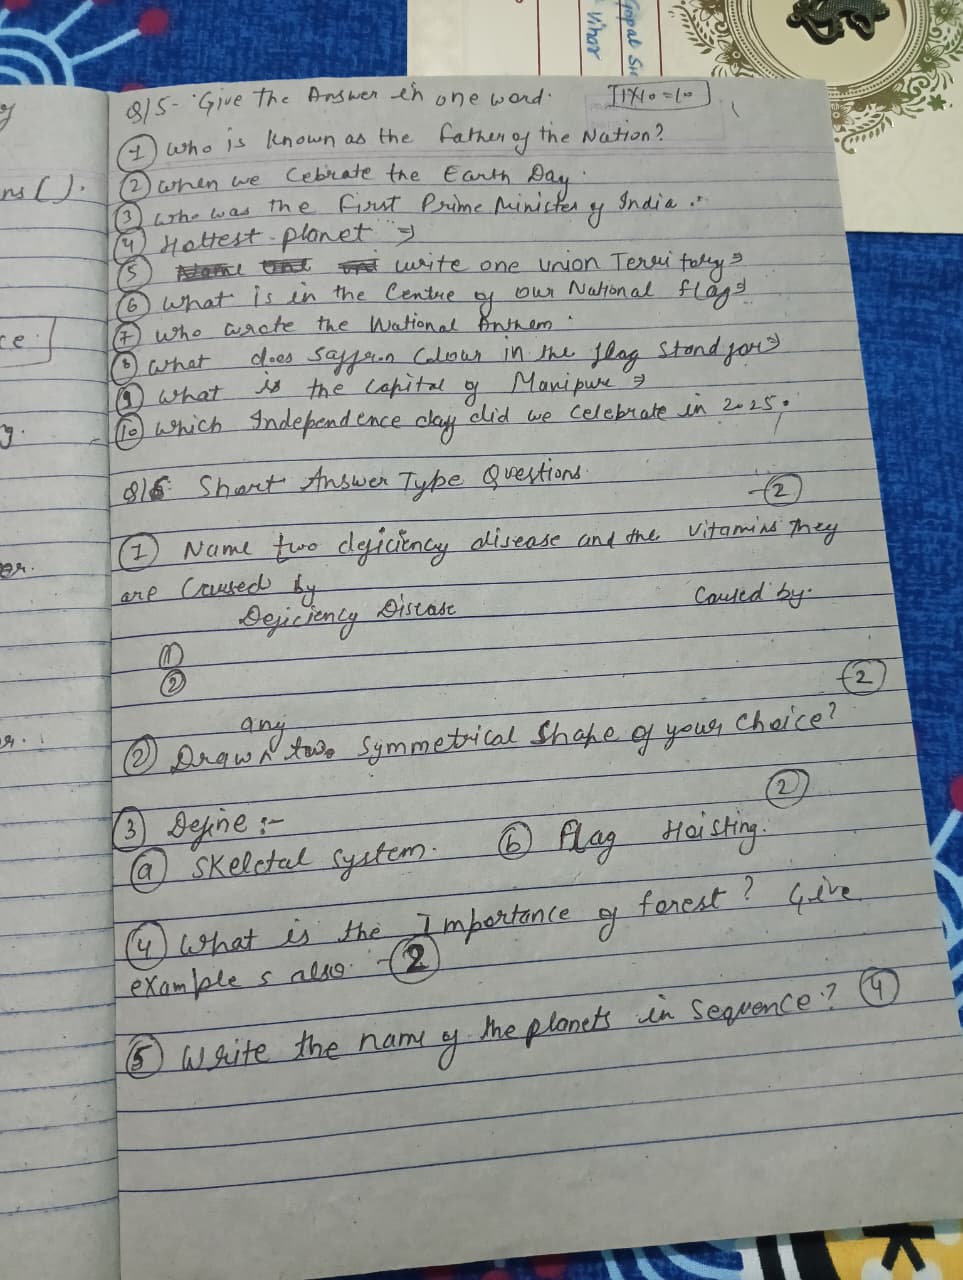 Gopal
Vihar
Q/5- Give the Answer in one word. 1X10=10
(1) Who is Known as the father of the Nation?
ns ( ).
(2) When we Cebrate the Earth Day.
(3) Who was the first Prime Minister of India.
(4) Hottest planet ⇒
(5) write one union Territory ⇒
(6) What is in the Centre of our National flag ⇒
(7) Who wrote the National Anthem.
ce.
(8) What does Saffron Colour in the flag stand for ⇒
(9) What is the Capital of Manipure ⇒
(10) Which Independence day did we Celebrate in 2025.
g.
Q/6: Short Answer Type Questions.
-(2)
(1) Name two deficiency disease and the vitamins They
are Caused by
er.
Deficiency Disease Caused by.
(1)
(2)
-(2)
any
(2) Draw ^ two Symmetrical Shape of your Choice?
(2)
(3) Define :-
(a) Skeletal System. (b) Flag Hoisting.
(4) What is the Importance of forest? Give
example s also. -(2)
(5) Write the name of the planets in Sequence? (4)